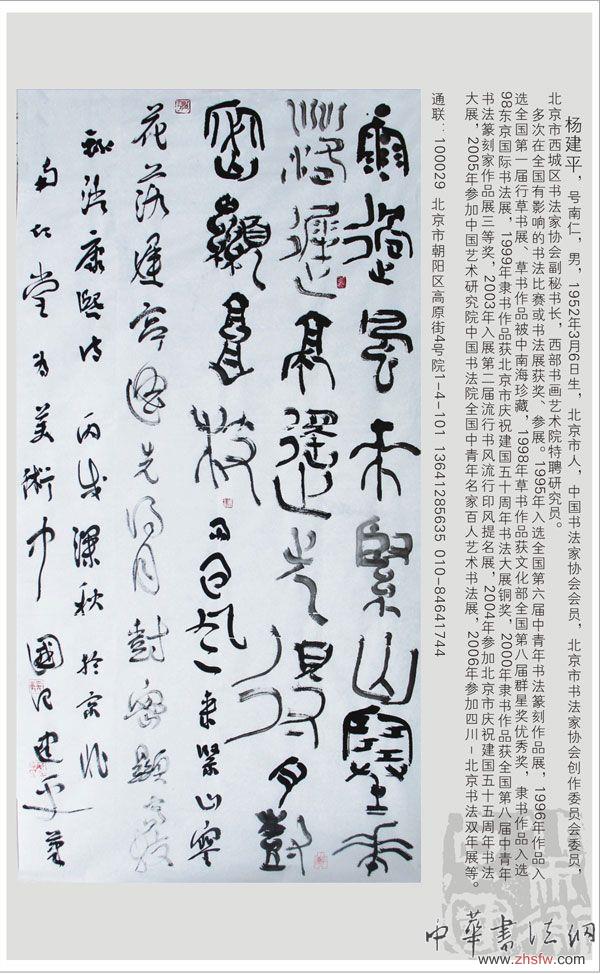 杨建平，号南仁，男，1952年3月6日生，北京市人，中国书法家协会会员，北京市书法家协会创作委员会委员，
北京市西城区书法家协会副秘书长，西部书画艺术院特聘研究员。
多次在全国有影响的书法比赛或书法展获奖、参展。1995年入选全国第六届中青年书法篆刻作品展，1996年作品入
选全国第一届行草书展、草书作品被中南海珍藏，1998年草书作品获文化部全国第八届群星奖优秀奖，隶书作品入选
98东京国际书法展，1999年隶书作品获北京市庆祝建国五十周年书法大展铜奖，2000年隶书作品获全国第八届中青年
书法篆刻家作品展三等奖，2003年入展第二届流行书风流行印风提名展，2004年参加北京市庆祝建国五十五周年书法
大展，2005年参加中国艺术研究院中国书法院全国中青年名家百人艺术书法展，2006年参加四川－北京书法双年展等。
通联：100029 北京市朝阳区高原街4号院1-4-101 13641285635 010-84641744
雨過風來緊山寒花
落遲亭遙先得月樹
密顯高枝 雨過風來緊山寒
花落遲亭遙先得月樹密顯高枝
康熙诗 丙戌深秋於京
南仁堂为美術中國 建平
中華書法網
www.zhsfw.com